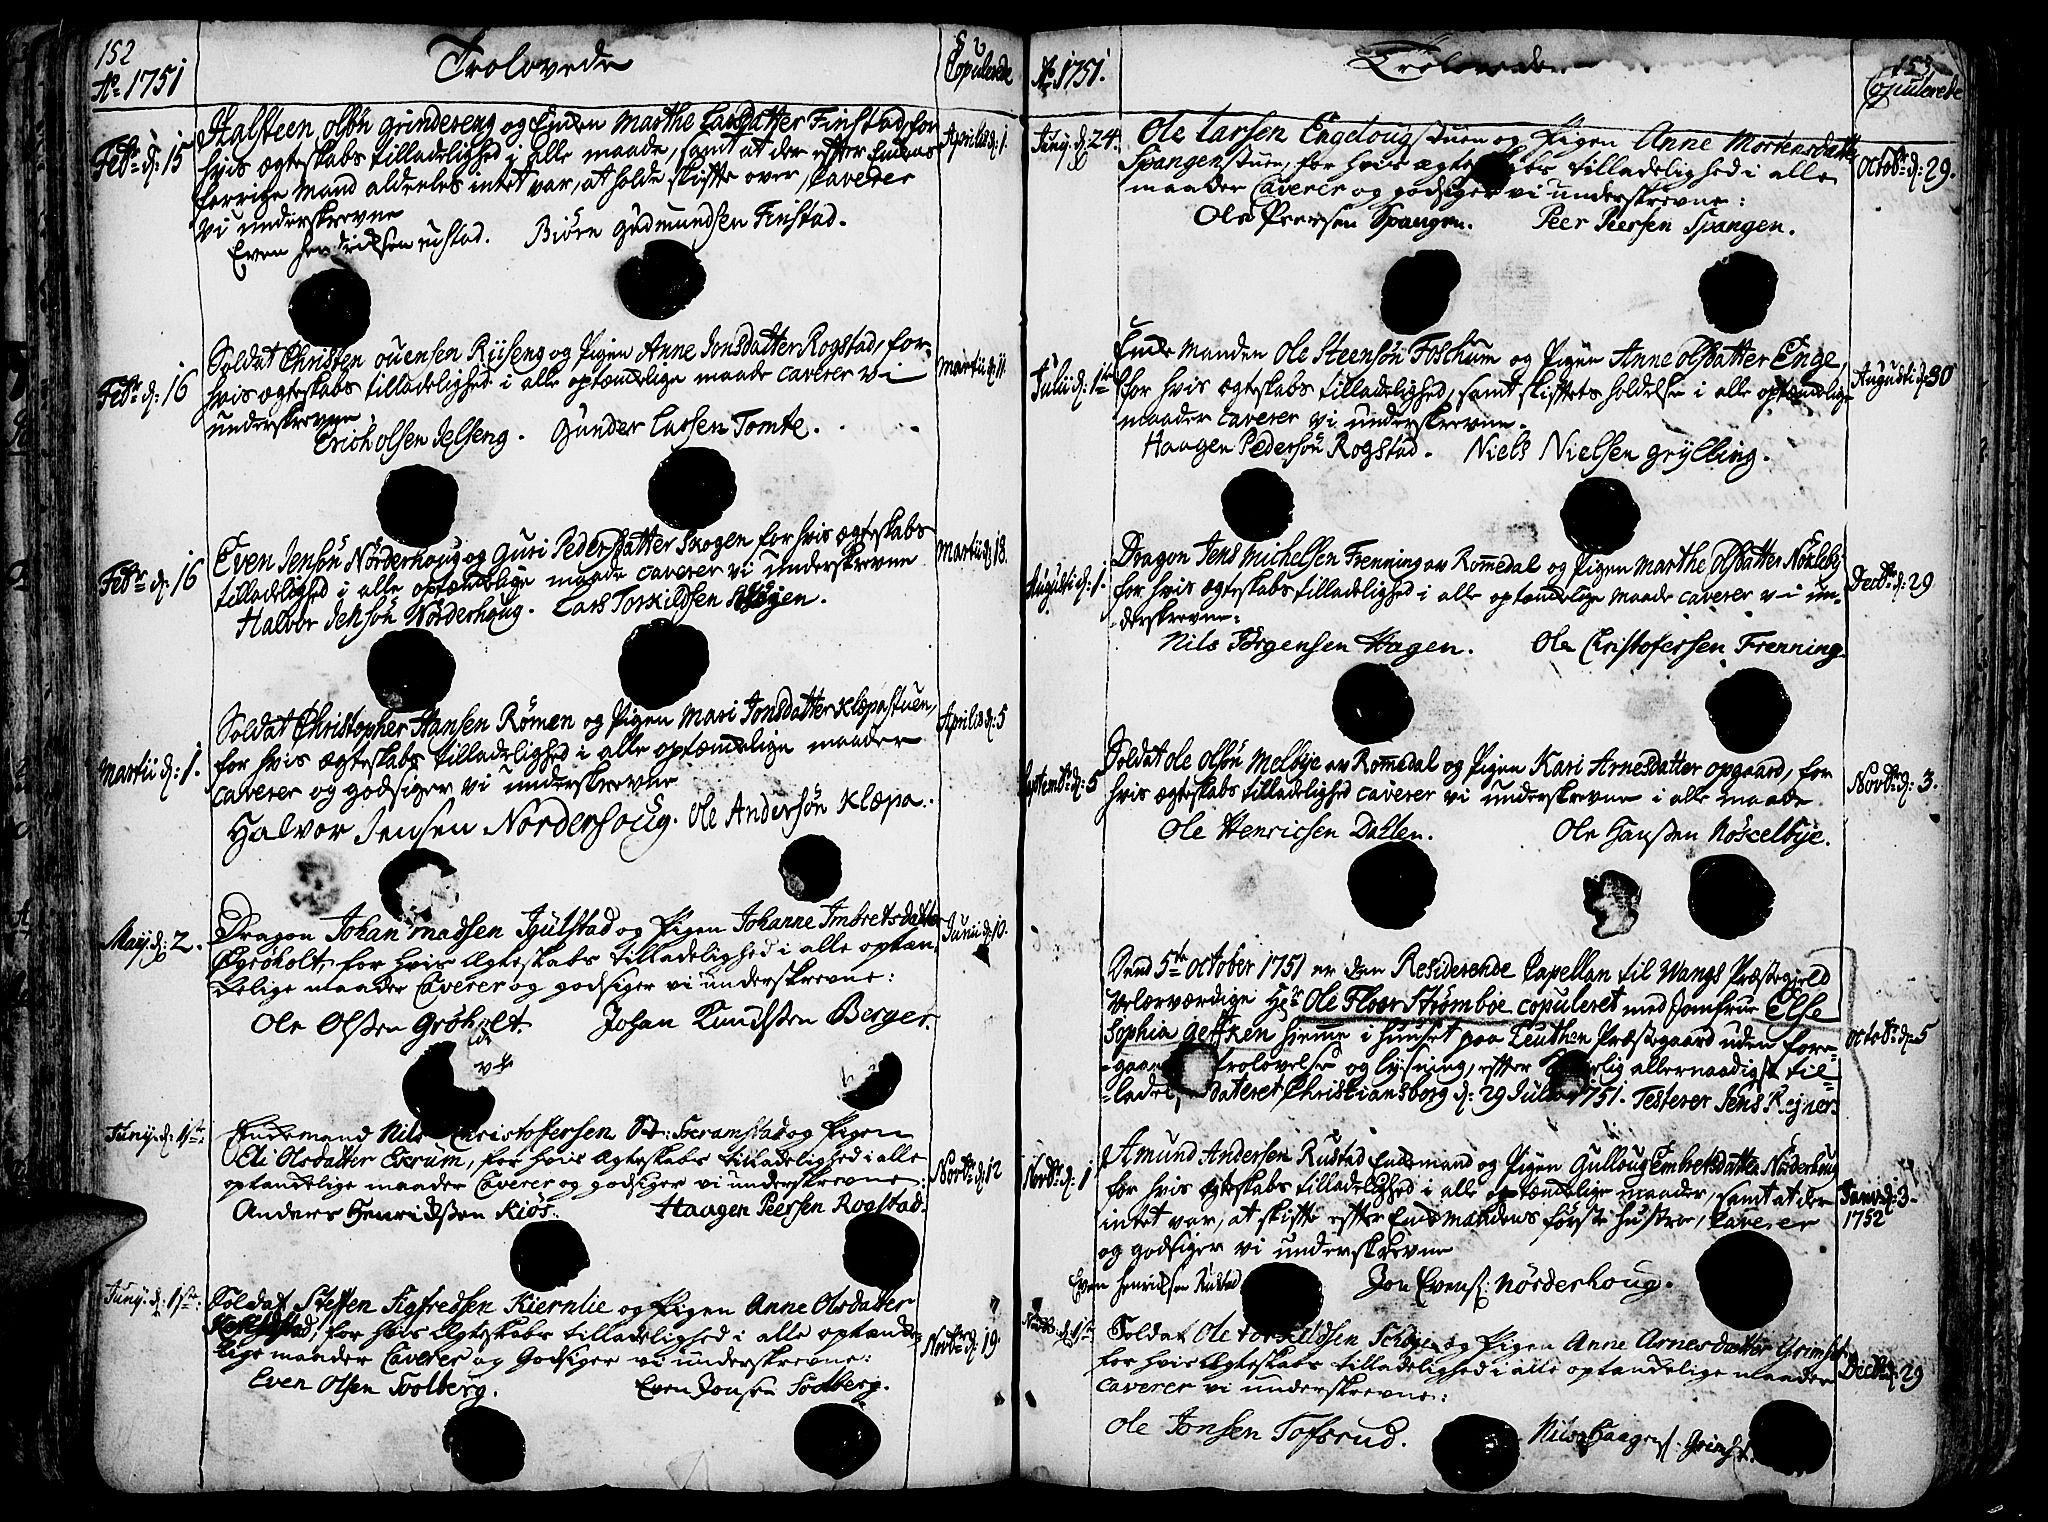 152
Ao 1751
Trolovede
Copulerede
Febr d: 15
Halsteen olsøn grindereng og Enken Marthe Larsdatter Finstad, for
hvis ægteskabs tilladelighed i alle maade, samt at der efter Enkens
forrige Mand aldeeles intet var, at holde skifte over, Caverer
vi underskrevne
Even Hendrichsen rustad. Biørn Gudmundsen Finstad.
Aprilis d: 1.
Febr d: 16
Soldat Christen ouensen Rÿseng og Pigen Anne Jonsdatter Rogstad, for-
hvis ægteskabs tilladelighed i alle optænkelige maade caverer vi
underskrevne
Erich olsen Jelseng. Gunder Larsen Tomte.
Martii d: 11.
Febr d: 16
Even Jensøn Nørderhoug og Guri Pedersdatter Skogen for hvis ægteskabs
tilladelighed i alle optænkelige maade caverer vi underskrevne
Halvor Jensøn Nørderhoug. Lars Torkildsen Skogen.
Martii d: 18.
Martii d: 1.
Soldat Christopher Hansen Rømen og Pigen Mari Jonsdatter Klæpastuen,
for hvis ægteskabs tilladelighed i alle optænkelige maader
caverer og godsiger vi underskrevne
Halvor Jensen Norderhoug. Ole Andersøn Klæpa.
Aprilis d: 5
Maij. d: 2.
Dragon Johan Madsen Igulstad og Pigen Johanne Imbretsdatter
Øgrøholt, for hvis Ægteskabs tilladelighed i alle optæn-
kelige maader Caverer og godsiger vi underskrevne:
Ole Olsen Grøholt. Johan Knudsen Berger.
Junii d: 10.
Junij. d: 1ste:
Enkemand Nils Christofersen Socramstad og Pigen
Eli Olsdatter Ekrum, for hvis Ægteskabs tilladelighed i alle
optænkelige maader Caverer og godsiger vi underskrevne:
Anders Henrichsen Kiøs. Haagen Peersen Rogstad.
Novbr d: 12
Junij. d: 1ste:
Soldat Steffen Sigfredsen Kiernlie og Pigen Anne Olsdatter
for hvis Ægteskabs tilladelighed i alle optænke-
lige maader Caverer og Godsiger vi underskrevne:
Even Olsen Solberg. Even Jonsen Solberg.
Novbr d: 19
Ao 1751.
Trolovede
153
Copulerede
Junij. d: 24.
Ole Larsen Engelougstuen og Pigen Anne Mortensdatter
Spangenstuen, for hvis ægteskabs tilladelighed i alle
maader Caverer og godsiger vi underskrevne:
Ole Peersen Spangen. Peer Peersen Spangen.
Octobr d: 29.
Julii d: 1ste
Enke Manden Ole Steensøn Foskum og Pigen Anne Olsdatter Enge,
for hvis ægteskabs tilladelighed, samt skiftets holdelse i alle optænkelige
maader caverer vi underskrevne.
Haagen Pedersøn Rogstad. Niels Nielsen grylling.
Augusti d: 30
Augusti d: 1.
Dragon Jens Michelsen Frenning av Romedal og Pigen Marthe Olsdatter Nøkleby
for hvis ægteskabs tilladelighed i alle optænkelige maade caverer vi un-
derskrevne:
Nils Jørgensen Hagen. Ole Christofersen Frenning.
Decbr d: 29
Septembr d: 5
Soldat ole olsøn Melbye av Romedal og Pigen Kari Arnesdatter opgaard, for
hvis ægteskabs tilladelighed caverer vi underskrevne i alle maade
Ole Henricsen Dahlen. Ole Hansen Nøckelbye.
Novbr d: 3.
Dend 5te october 1751 er den Residerende Capellan til Wangs Præstegield
Velærværdige Hr Ole Floer Strømboe copuleret med Jomfrue Else
Sophia Geffken hiemme i huuset paa Leuthen Præstegaard uden fore-
-gaaende trolovelse og lysning, efter Kongelig allernaadigst til-
-ladelse, dateret Christiansborg d: 29 Julii 1751. Testerer Jens Rejner.
octobr d: 5
Novbr d: 1
Amund Andersen Rustad Enkemand og Pigen Gulloug Embretsdatter Nørderhoug
for hvis ægteskabs tilladelighed i alle optænkelige maader, samt at der
intet var, at skifte efter Enkemandens første hustroe, Caverer
og godsiger vi underskrevne
Even Henrichsen Rustad Jon Evens: Nørderhoug.
Janv: d: 3.
1752
Novbr: d: 1ste
Soldat Ole torkildsen Schoje og Pigen Anne Arnesdatter Grimset,
for hvis Ægteskabs tilladelighed i alle optænkelige maader
caverer vi underskrevne:
Ole Jonsen Tofsrud. Nils Haagens: Grimset.
Decbr d: 29